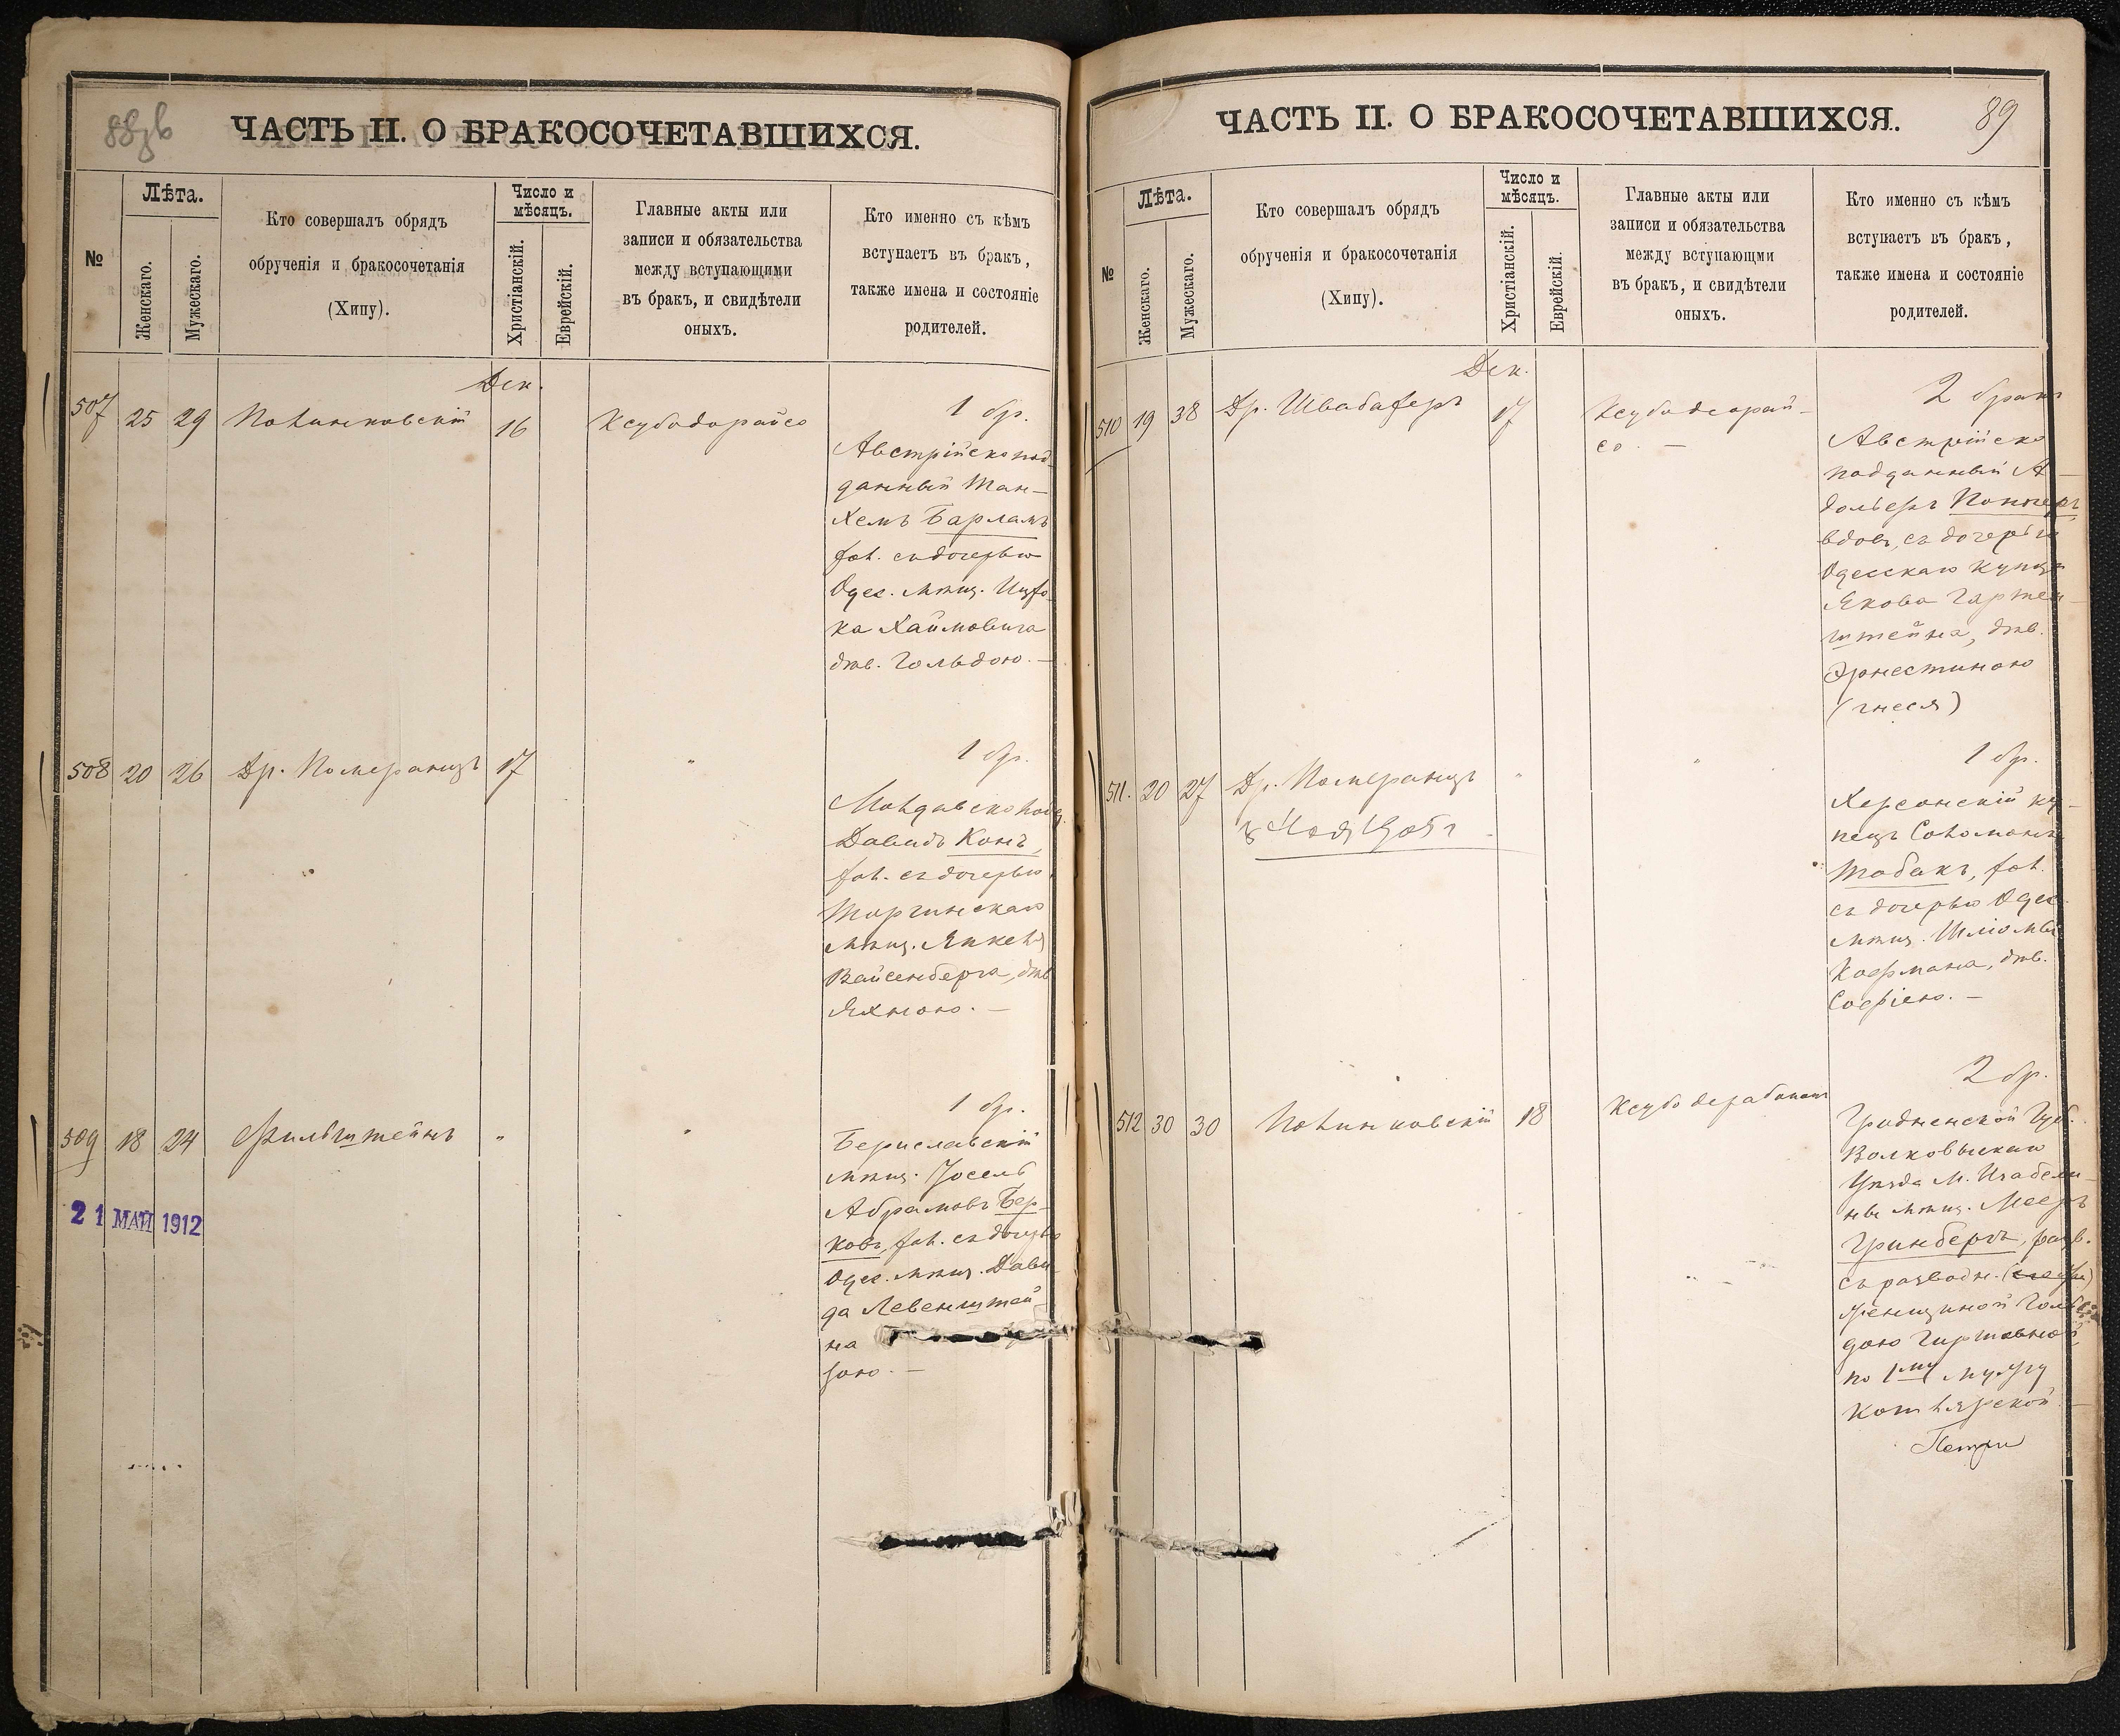 88зв
ЧАСТЬ II. О БРАКОСОЧЕТАВШИХСЯ.
№
Лѣта.
Женскаго.
Мужескаго.
Кто совершалъ обрядъ
обрученія и бракосочетанія
(Хипу).
Число и
мѣсяцъ.
Христіанскій.
Еврейскій.
Главные акты или
записи и обязательства
между вступающими
въ бракъ, и свидѣтели
оныхъ.
Кто именно съ кѣмъ
вступаетъ въ бракъ,
также имена и состояніе
родителей.
Дек.
507 25 29 Полинковскій 16 Ксубодорайсо
1 бр.
Австрійско под-
данный Ман-
хемъ Барламъ
хол. съ дочерью
Одес. мѣщ. Ицхо-
ка Хаимовича
дѣв. Гольдою. —
508 20 26 Др. Померанцъ 17 "
1 бр.
Молдавско под.
Давидъ Конъ,
хол. съ дочерью
мѣщ. Янкеля
Вайсенберга, дѣв.
Яхною. —
509 18 24 Фильштейнъ " "
1 бр.
Бериславскій
мѣщ. Іосель
Абрамовъ Бер-
ковъ, хол. съ дочерью
Одес. мѣщ. Дави-
да Левенштей-
на
зою. —
21 МАЙ 1912
89
ЧАСТЬ II. О БРАКОСОЧЕТАВШИХСЯ.
№
Лѣта.
Женскаго.
Мужескаго.
Кто совершалъ обрядъ
обрученія и бракосочетанія
(Хипу).
Число и
мѣсяцъ.
Христіанскій.
Еврейскій.
Главные акты или
записи и обязательства
между вступающми
въ бракъ, и свидѣтели
оныхъ.
Кто именно съ кѣмъ
вступаетъ въ бракъ,
также имена и состояніе
родителей.
Дек.
510 19 38 Др. Швабахеръ 17 Ксубодеорай-
со. —
2 бракъ
Австрійско
подданный А-
дольфъ
вдов, съ дочерью
Одесскаго купца
Якова Гартен-
штейна, дѣв.
Эрнестиною
(Гнеся)
511. 20 27 Др. Померанцъ " "
1 бр.
Херсонскій ку-
пецъ Соломонъ
Табакъ, хол.
съ дочерью Одес.
мѣщ. Шліомы
Кофмана, дѣв.
Софіею. —
512 30 30 Полинковскій 18 Ксубо дерабонон
2 бр.
Гродненской Губ.
Волковыскаго
Уѣзда М. Изабели-
ны мѣщ. Мееръ
Гринбергъ, разв.
съ разводн.
женщиной Голь-
дою Гиршовной
по 1му мужу
Котлярской —